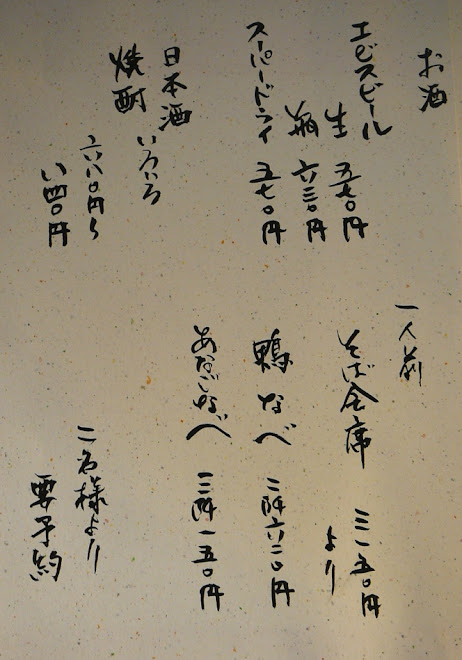 お酒
エビスビール
生 五七〇円
瓶 六三〇円
スーパードライ 五七〇円
日本酒
焼酎 いろいろ
六八〇円〜
八四〇円
一人前
そば会席 三一五〇円
より
鴨なべ 二阡六二〇円
あなごなべ 三阡一五〇円
二名様より
要予約